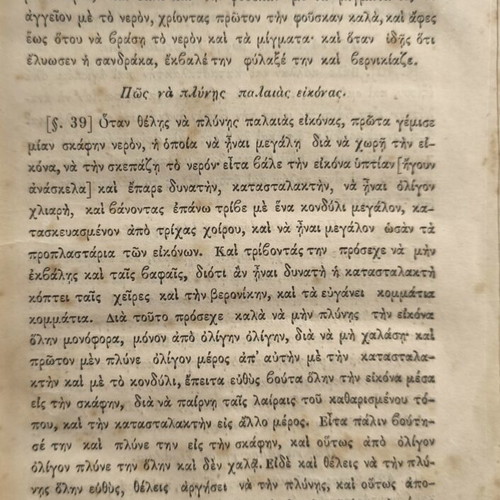 ἀγγεῖον μὲ τὸ νερὸν, χρίοντας πρῶτον τὴν φοῦσκαν καλὰ, καὶ ἄφες
ἕως ὅτου νὰ βράσῃ τὸ νερὸν καὶ τὰ μίγματα· καὶ ὅταν ἰδῇς ὅτι
ἔλυωσεν ἡ σανδράκα, ἔκβαλέ την φύλαξέ την καὶ βερνικίαζε.
Πῶς νὰ πλύνῃς παλαιὰς εἰκόνας.
[§. 39] Ὅταν θέλῃς νὰ πλύνῃς παλαιὰς εἰκόνας, πρῶτα γέμισε
μίαν σκάφην νερὸν, ἡ ὁποία νὰ ᾖναι μεγάλη διὰ νὰ χωρῇ τὴν εἰ-
κόνα, νὰ τὴν σκεπάζῃ τὸ νερόν· εἶτα βάλε τὴν εἰκόνα ὑπτίαν [ἤγουν
ἀνάσκελα] καὶ ἔπαρε δυνατὴν, κατασταλακτὴν, νὰ ᾖναι ὀλίγον
χλιαρὴ, καὶ βάνοντας ἐπάνω τρίβε μὲ ἕνα κονδύλι μεγάλον, κα-
τασκευασμένον ἀπὸ τρίχας χοίρου, καὶ νὰ ᾖναι μεγάλον ὡσὰν τὰ
προπλαστάρια τῶν εἰκόνων. Καὶ τρίβοντάς την πρόσεχε νὰ μὴν
ἐκβάλῃς καὶ ταῖς βαφαῖς, διότι ἂν ᾖναι δυνατὴ ἡ κατασταλακτὴ
κόπτει ταῖς χεῖρες καὶ τὴν βερονίκην, καὶ τὰ εὐγάνει κομμάτια
κομμάτια. Διὰ τοῦτο πρόσεχε καλὰ νὰ μὴν πλύνῃς τὴν εἰκόνα
ὅλην μονόφορα, μόνον ἀπὸ ὀλίγην ὀλίγην, διὰ νὰ μὴ χαλάσῃ· καὶ
πρῶτον μὲν πλύνε ὀλίγον μέρος ἀπ' αὐτὴν μὲ τὴν κατασταλα-
κτὴν καὶ μὲ τὸ κονδύλι, ἔπειτα εὐθὺς βοῦτα ὅλην τὴν εἰκόνα μέσα
εἰς τὴν σκάφην, διὰ νὰ παίρνῃ ταῖς λαίραις τοῦ καθαρισμένου τό-
που, καὶ τὴν κατασταλακτὴν εἰς ἄλλο μέρος. Εἶτα πάλιν βούτη-
σέ την καὶ πλύνε την εἰς τὴν σκάφην, καὶ οὕτως ἀπὸ ὀλίγον
ὀλίγον πλύνε την ὅλην καὶ δὲν χαλᾷ. Εἰδὲ καὶ θέλεις νὰ τὴν πλύ-
νῃς ὅλην εὐθὺς, θέλεις ἀργήσει νὰ τὴν πλύνῃς, καὶ οὕτως ἀπο-